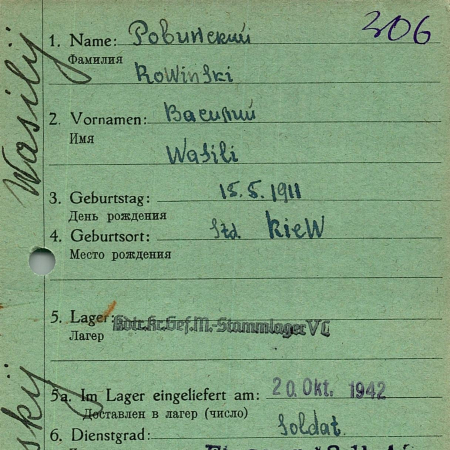 306
1. Name: Ровинский
Фамилия
Rowinski
2. Vornamen: Василий
Имя
Wasili
3. Geburtstag: 15.5.1911
День рождения
4. Geburtsort: Std Kiew
Место рождения
5. Lager: Kdtr.Kr.Gef.M.-Stammlager V C
Лагер
5a. Im Lager eingeliefert am: 20. Okt. 1942
Доставлен в лагер (число)
6. Dienstgrad: Soldat.
Wasilij